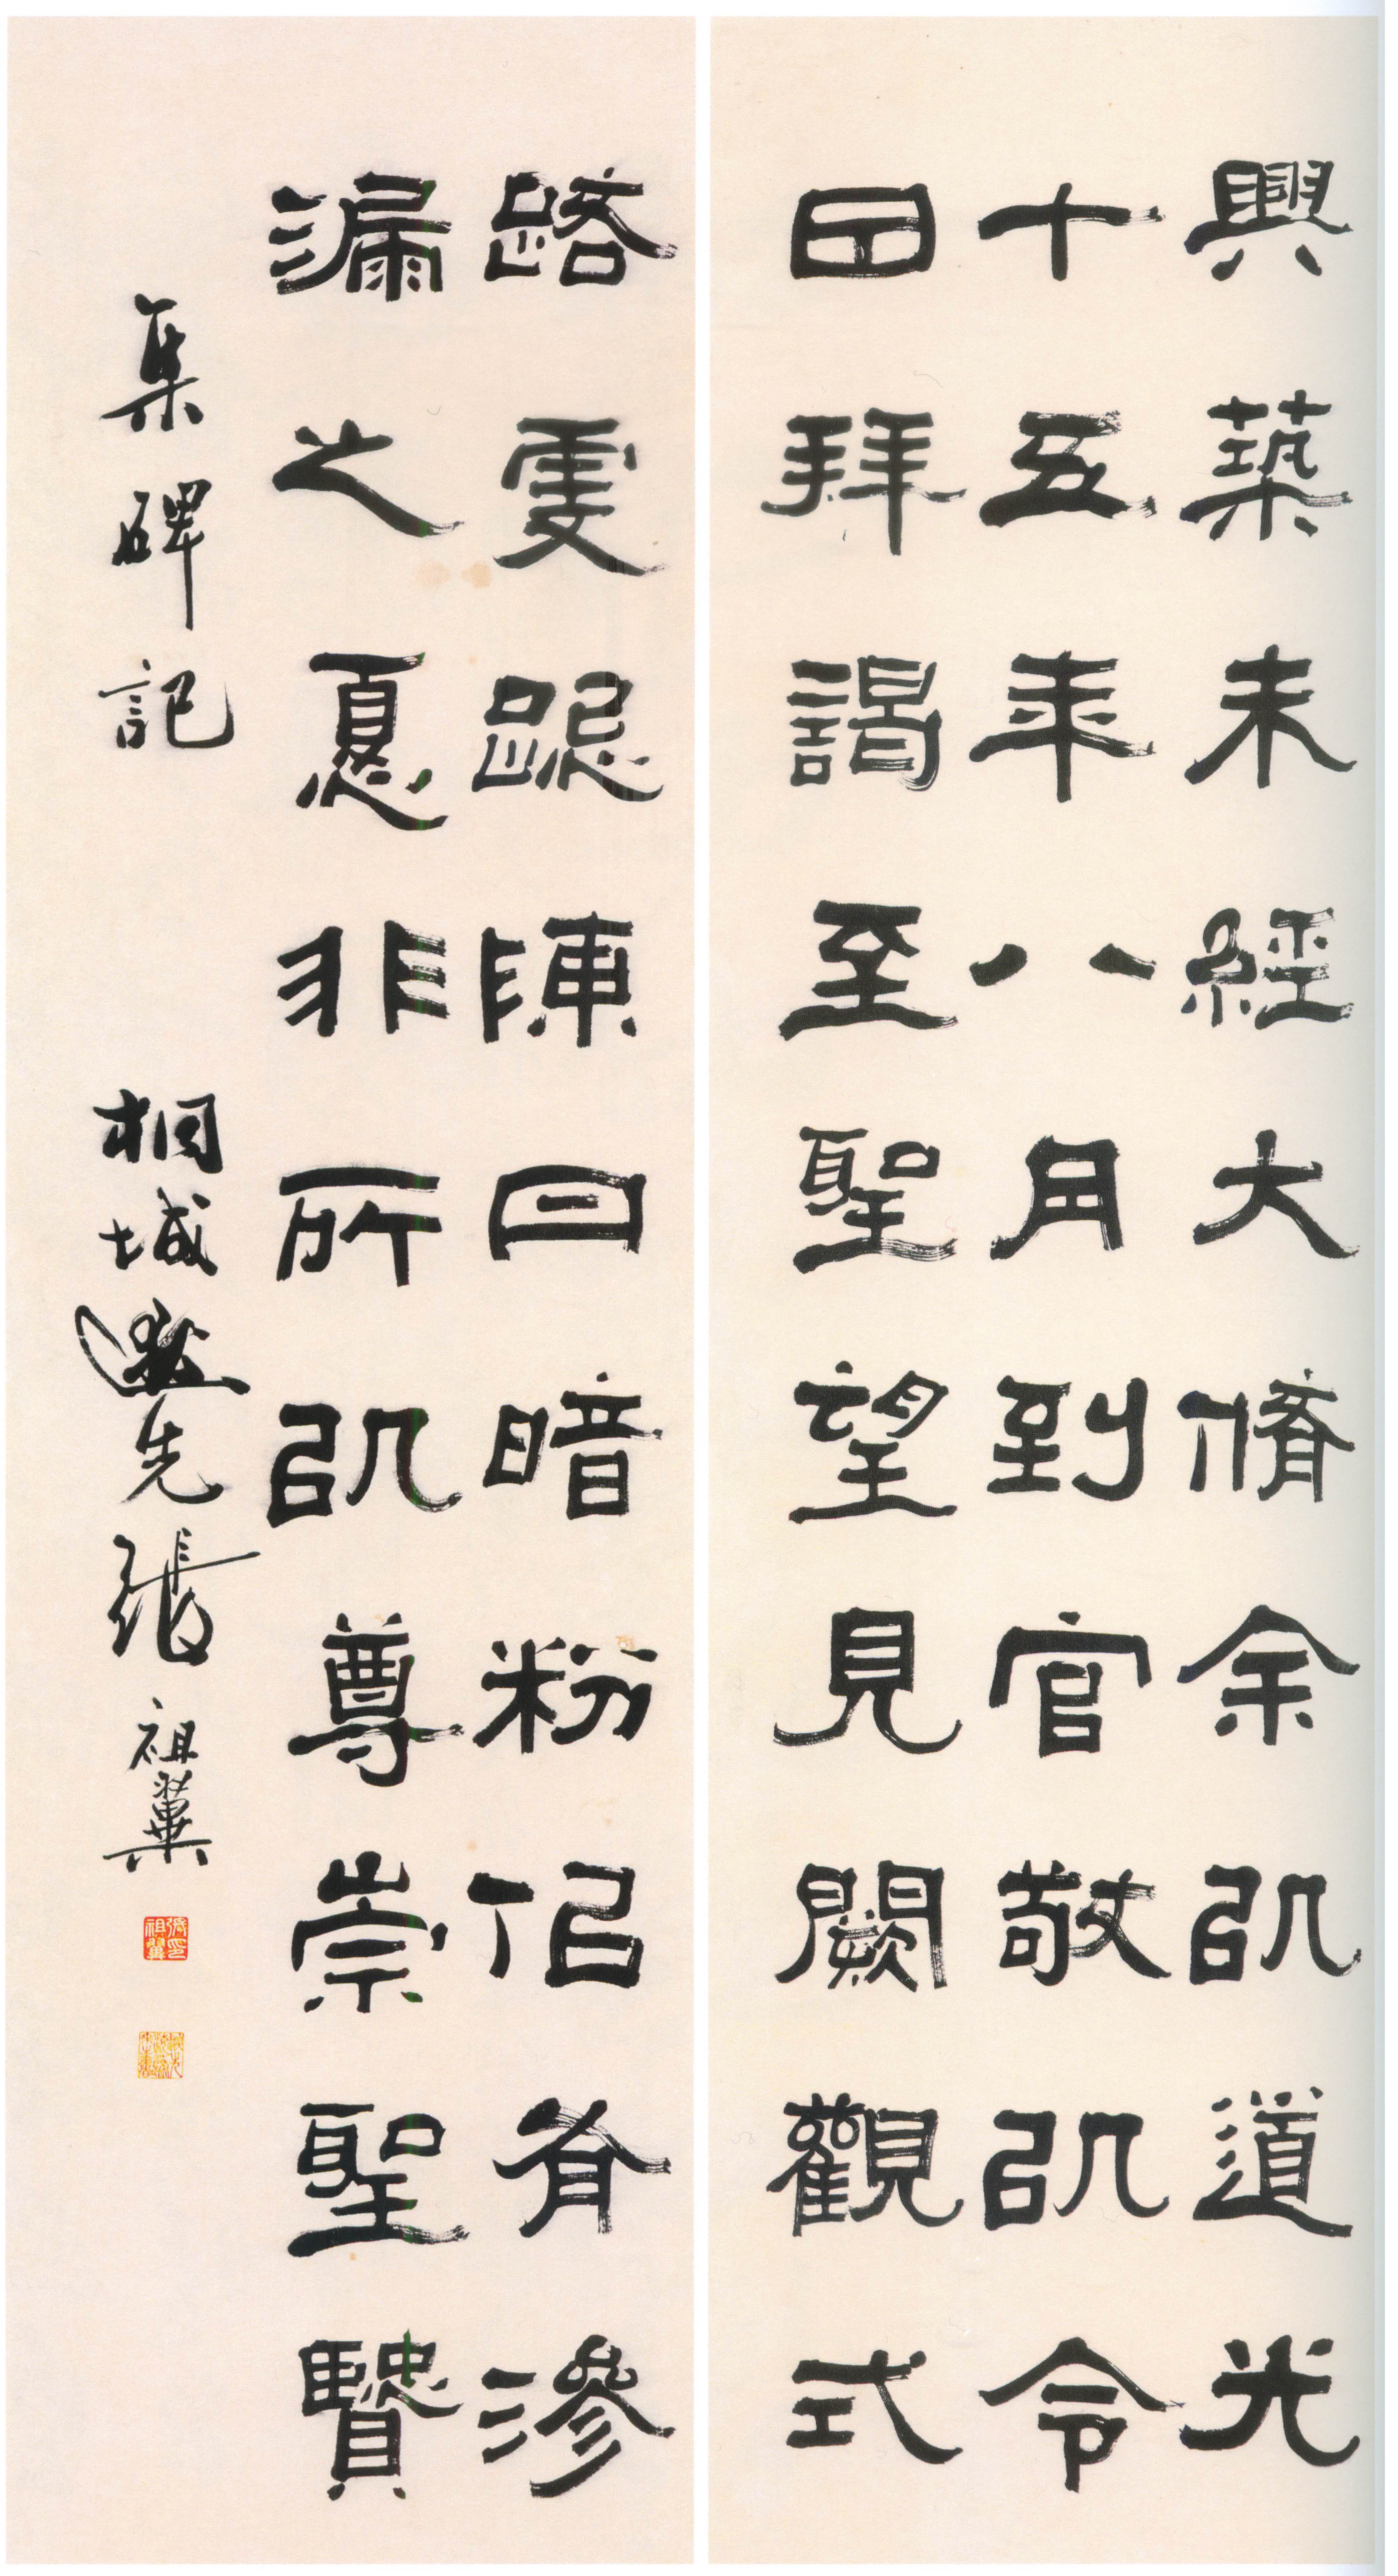 興築未經大脩余㕥道光
十五年八月到官敬㕥令
日拜謁至聖望見闕觀式
路虔跽陳曰暗粉佀有滲
漏之憂非所㕥尊崇聖賢
集碑記 桐城逖先張祖翼
張祖翼印